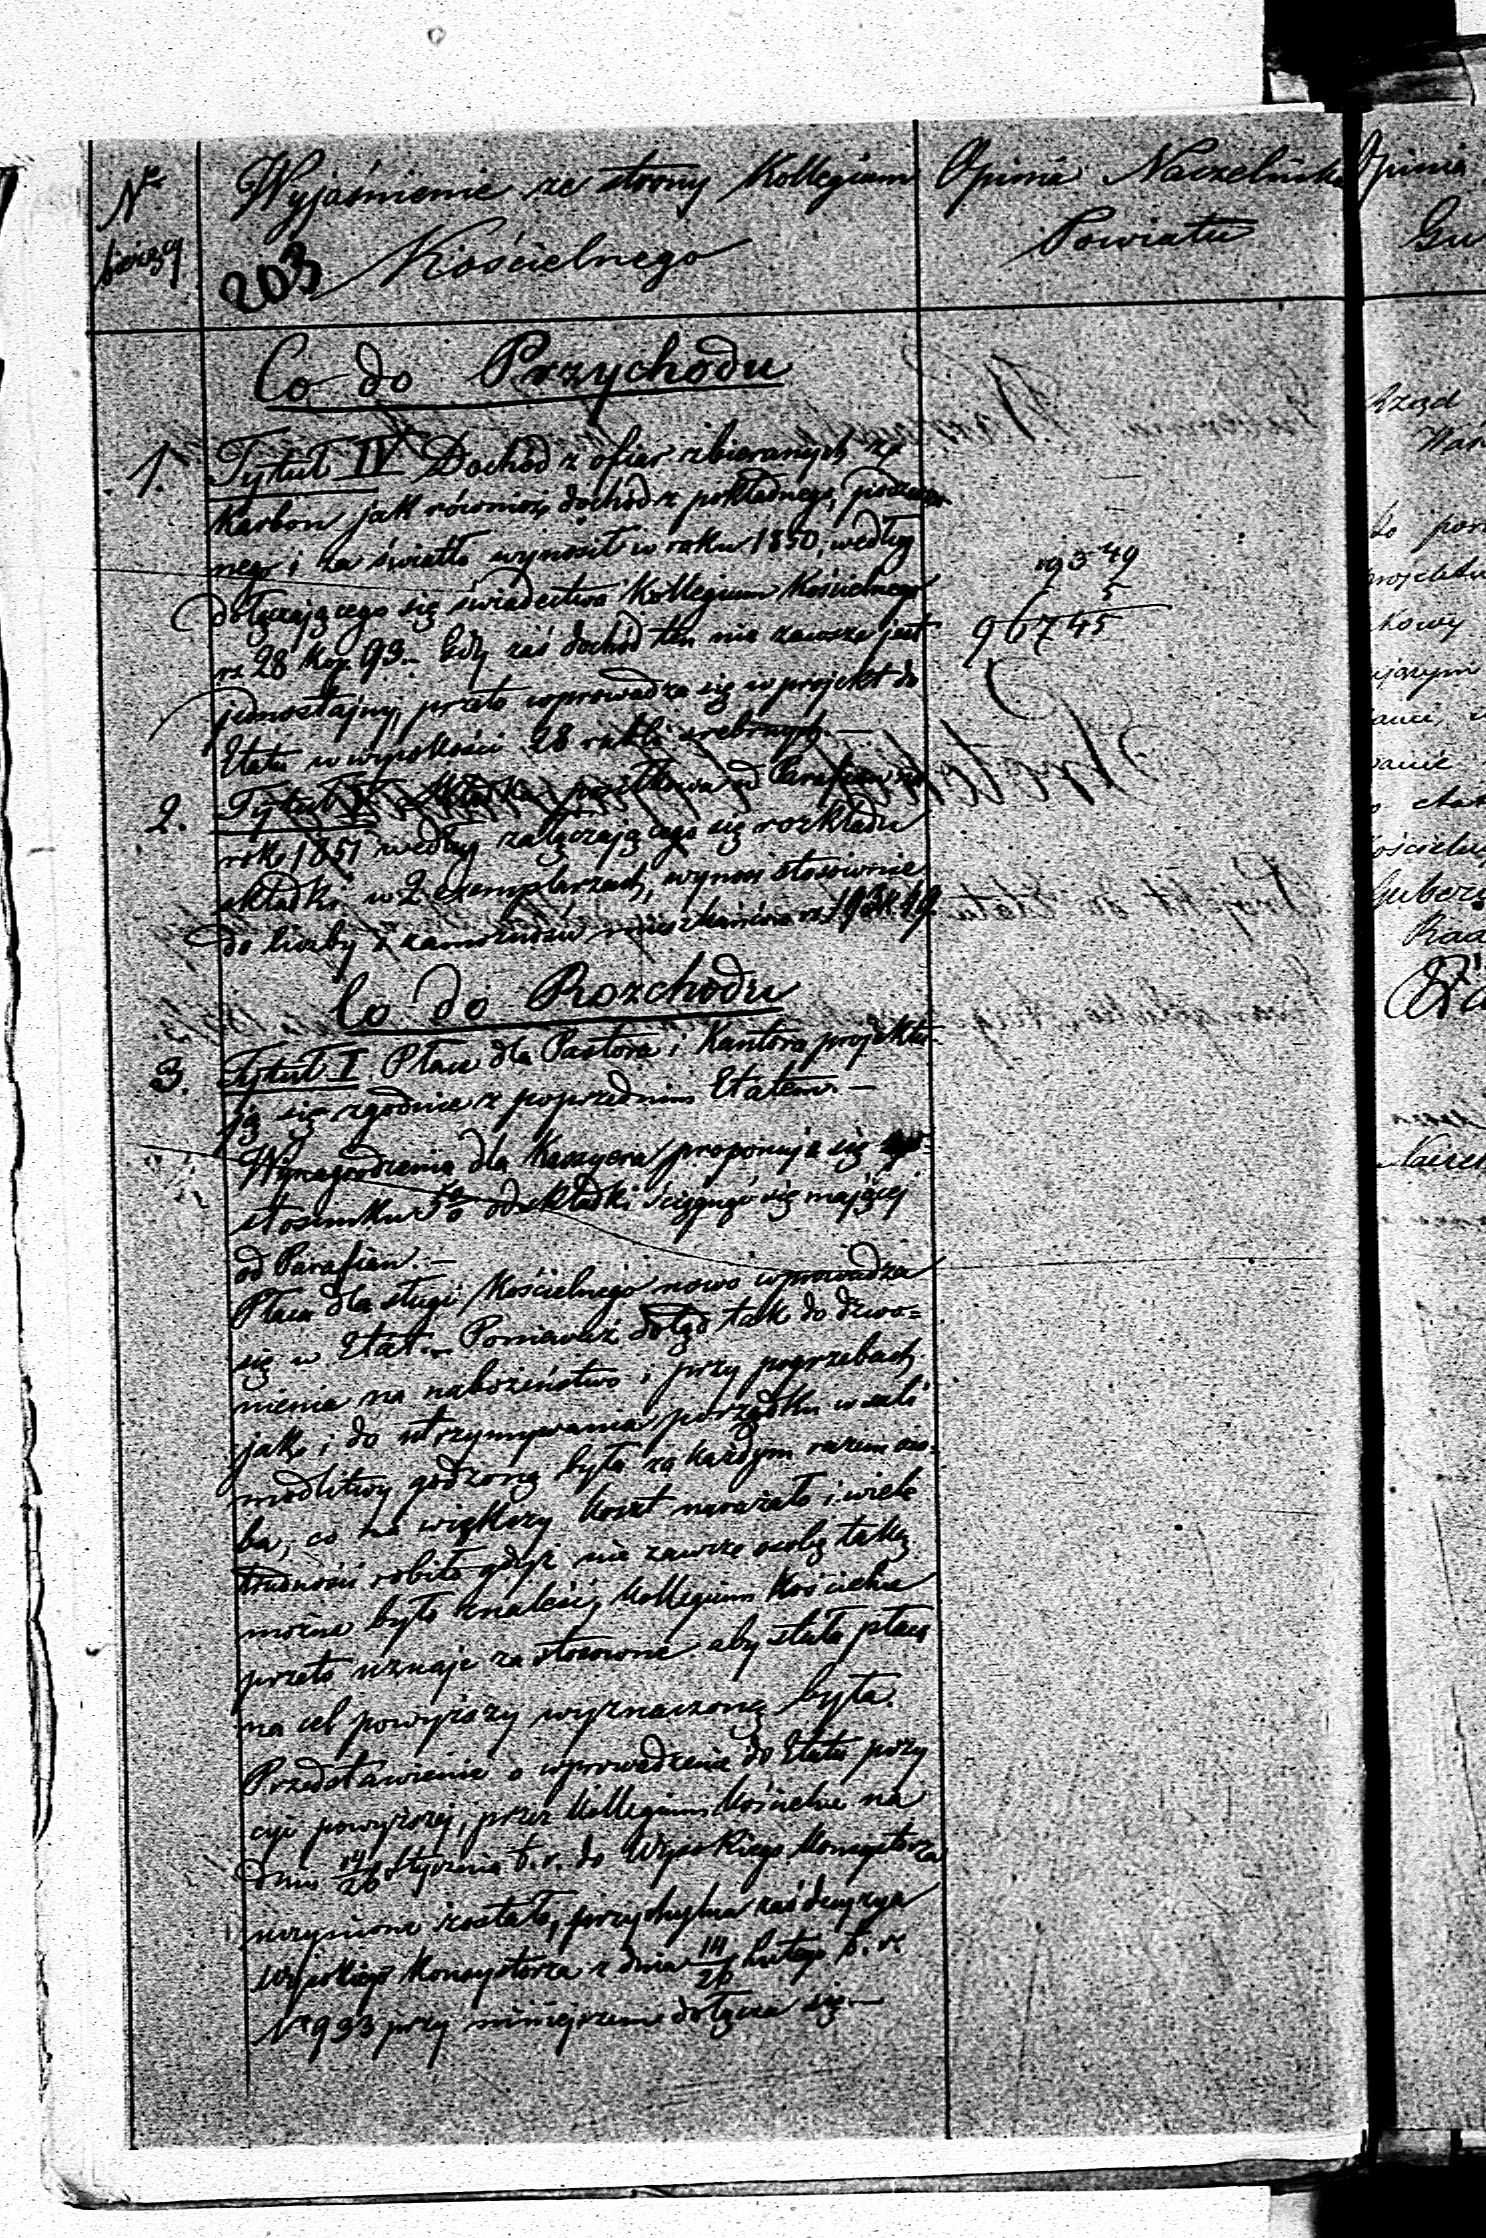 Nr bieżący
Wyjaśnienie ze strony Kollegium
Kościelnego
203
Opinia Naczelnika
Powiatu
Opinia
Gu
Co do Przychodu
1. Tytuł IV Dochód z ofiar zbieranych z
Karbon jak również dochód z pokładnego,
nego i za światło wynosił w roku 1850, według
dołączającego się świadectwa Kollegium Kościelnego
rs 28 kop. 93.– Gdy zaś dochód ten nie zawsze jest
jednostajny, przeto wprowadza się w projekt do
Etatu w wysokości 28 rubli srebrnych.–
2. Tytuł V Składka posiłkowa od Parafian na
rok 1851 według załączającego się rozkładu
składki w 2 exemplarzach, wynosi stosownie
do liczby i zamożności mieszkańców rs 193 k. 49.
193 49
5
967 45
Co do Rozchodu
3. Tytuł I Płace dla Pastora i Kantora projektu-
ją się zgodnie z poprzednim Etatem.–
Wynagrodzenie dla Kassyera proponuje się
stosunku 5% od składki ściągnąć się mającej
od Parafian.–
Płaca dla sługi Kościelnego nowo wprowadza
się w Etat.– Ponieważ dotąd tak do dzwo=
nienia na nabożeństwo i przy pogrzebach
jako i do utrzymywania porządku w sali
modlitwy godzoną była za każdym razem oso-
ba, co na większy koszt narażało i wiele
trudności robiło gdyż nie zawsze osobę taką
można było znaleść, Kollegium Kościelne
przeto uznaje za stosowne aby stała płaca
na cel powyższy wyznaczoną była.
Przedstawienie o wprowadzenie do Etatu pozy
cyi powyższej, przez Kollegium Kościelne na
dniu 14/26 Stycznia b. r. do Wysokiego Konsystorza
uczynione zostało, przychylna zaś decyzya
Wysokiego Konsystorza z dnia 14/26 Lutego b. r.
Nr 933 przy niniejszem dołącza się.–